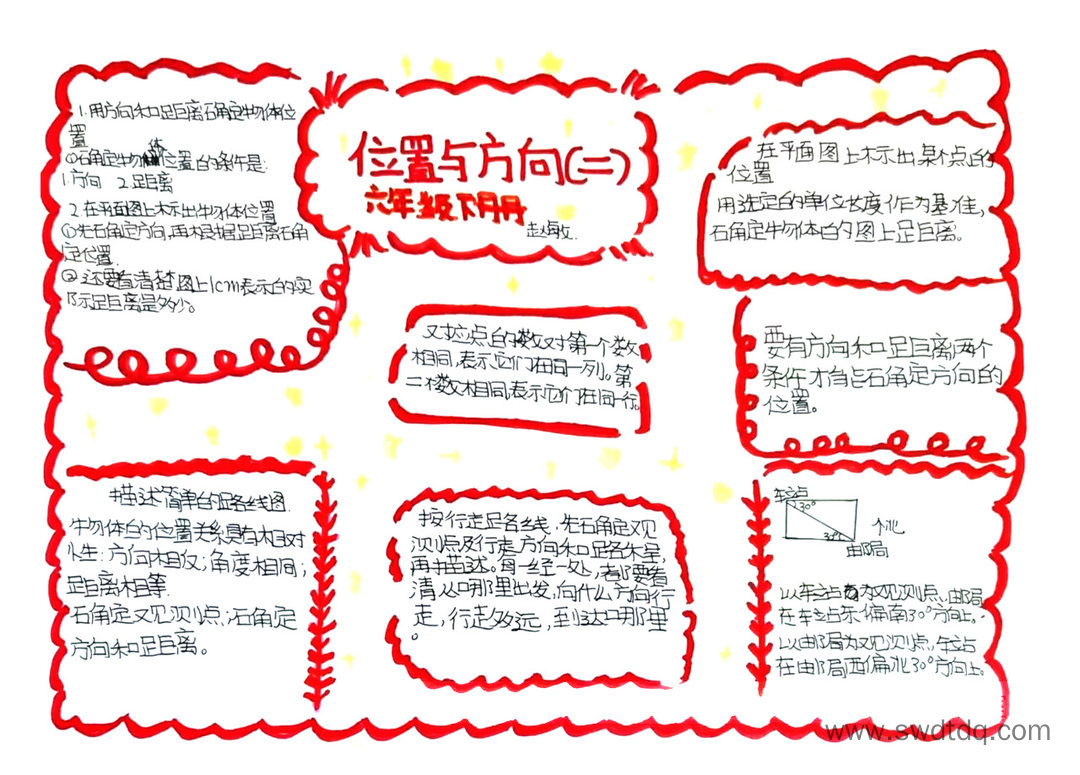 位置与方向(二)
六年级下册
1.用方向和距离确定物体位
置
①确定物体位置的条件是:
1.方向 2.距离
2.在平面图上标示出物体位置
①先确定方向,再根据距离确
定位置.
②还要看清楚图上1cm表示的实
际距离是多少。
又对应点的数对第一个数
相同,表示它们在同一列。第
二个数相同,表示它们在同一行。
在平面图上标示出某个点的
位置
用选定的单位长度作为基准,
确定物体的图上距离。
要有方向和距离两个
条件才能确定方向的
位置。
描述简单的路线图.
物体的位置关系具有相对
性:方向相反;角度相同;
距离相等.
确定观测点;确定
方向和距离。
按行走路线,先确定观
测点及行走方向和路程,
再描述。每一经处,都要看
清从哪里出发,向什么方向行
走,行走多远,到达哪里
。
车站
30°
30°
邮局
个北
以车站为观测点,邮局
在车站东偏南30°方向上。
以邮局为观测点,车站
在邮局西偏北30°方向上。
www.swdtdq.com